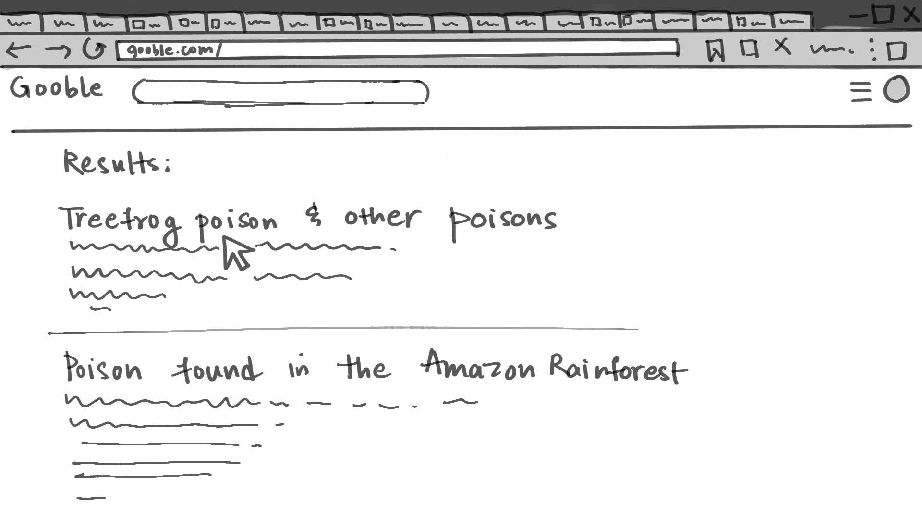 gooble.com/
Gooble
Results:
Treefrog poison & other poisons
Poison found in the Amazon Rainforest